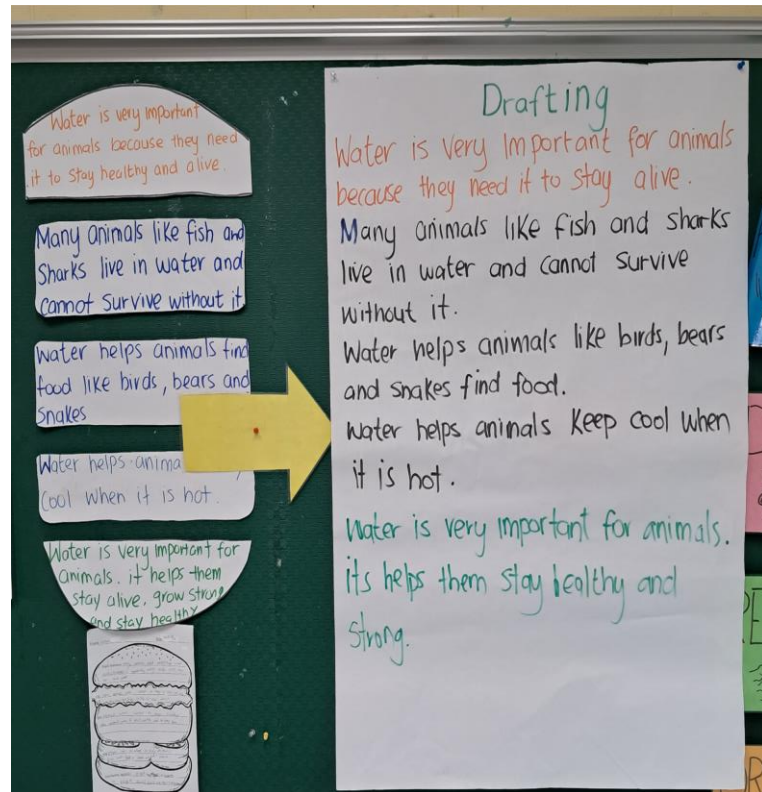 Water is very important
for animals because they need
it to stay healthy and alive.
Many animals like fish and
Sharks live in water and
cannot survive without it
water helps animals find
food like birds, bears and
Snakes
Water helps
cool when it is hot.
Water is very important for
animals. it helps them
stay alive, grow strong
and stay healthy
Drafting
Water is very important for animals
because they need it to stay alive.
Many animals like fish and sharks
live in water and cannot survive
without it.
Water helps animals like birds, bears
and snakes find food.
water helps animals keep cool when
it is hot.
water is very important for animals.
its helps them stay healthy and
strong.